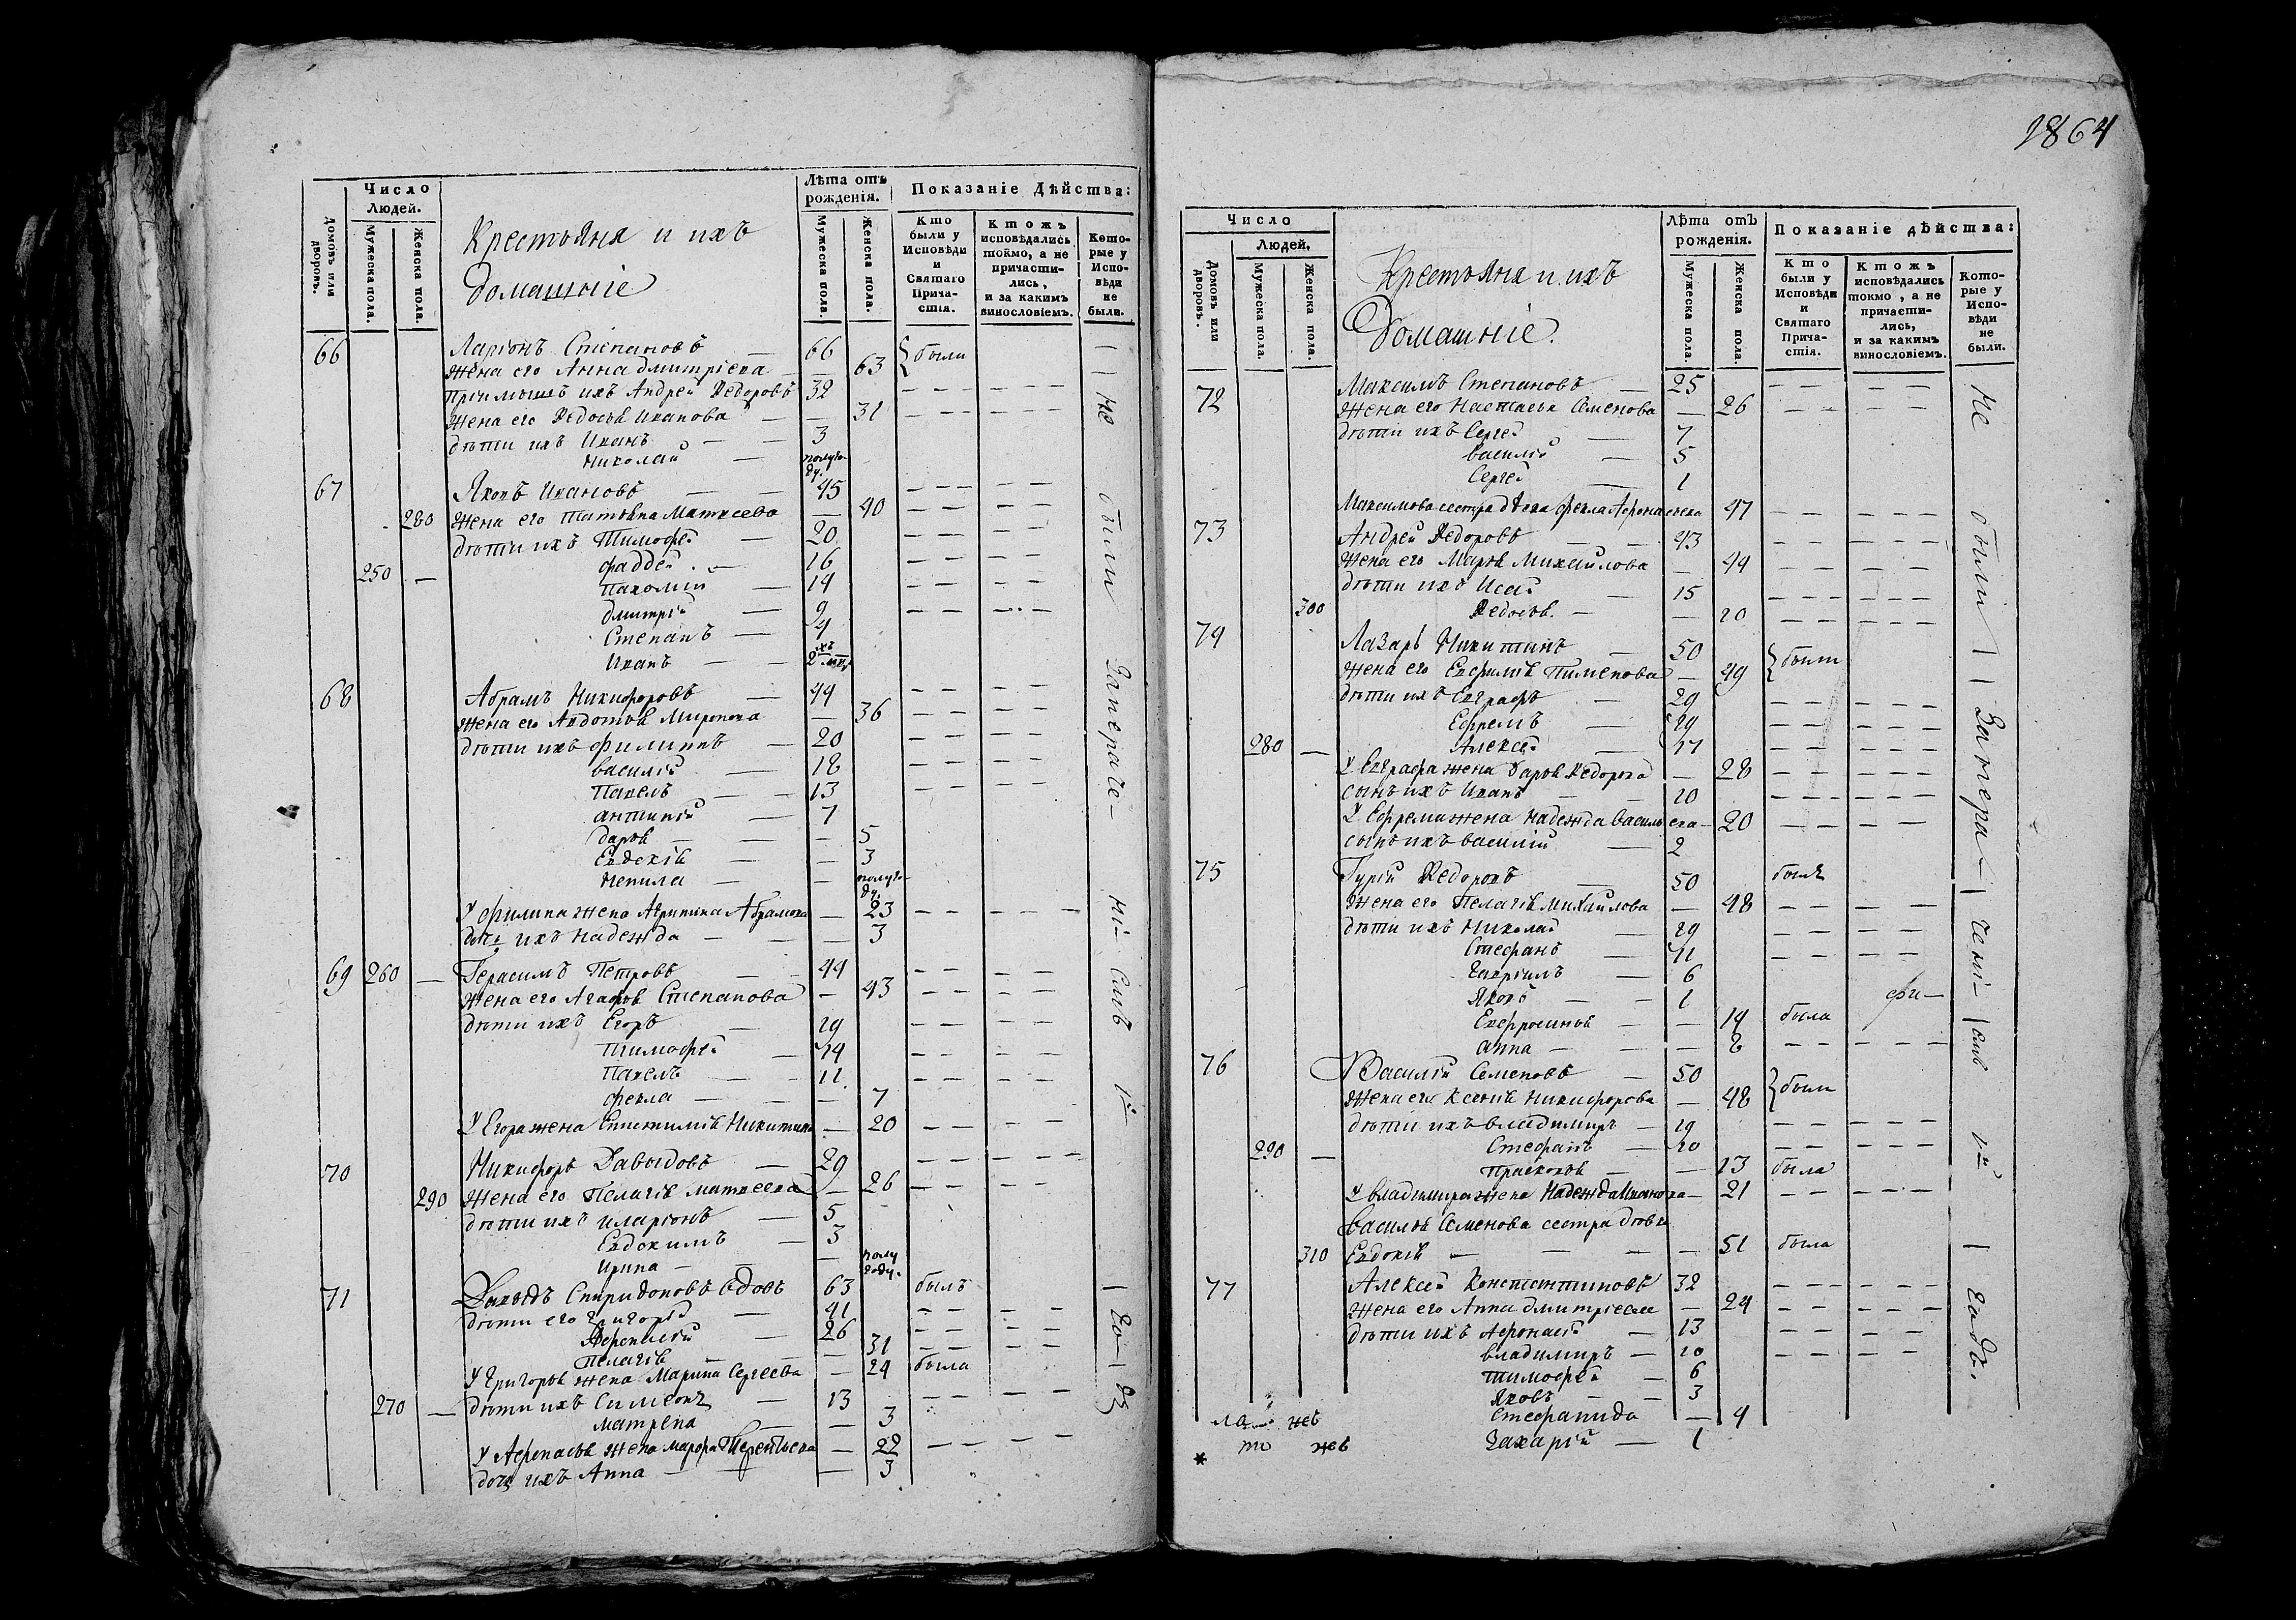 Число Людей.
Лѣта отъ рожденія.
Показаніе Дѣйства:
Домовъ или дворовъ.
Мужеска пола.
Женска пола.
Крестьяня и ихъ
домашніе
Мужеска пола.
Женска пола.
Кто были у Исповѣди и Святаго Причастія.
Ктожъ исповѣдались токмо, а не причастились, и за какимъ винословіемъ.
Которые у Исповѣди не были.
66 Ларіонъ Степановъ — 66 были
жена его Анна Дмитріева — 63
пріимышъ ихъ Андрей Ѳедоровъ 32
жена его Ѳедосья Иванова — 31
дѣти ихъ Иванъ — 3
Николай — полугоду.
67 Яковъ Ивановъ — 45
280 жена его Татьяна Матвеева — 40
дѣти ихъ Тимофей — 20
Фаддей — 16
250 — Пахомій — 14
Дмитрій — 9
Степанъ — 4
Иванъ — 2хъ
68 Абрамъ Никифоровъ — 44
жена его Авдотья Миронова — 36
дѣти ихъ Филиппъ — 20
Василій — 18
Павелъ — 13
Антипій — 7
Дарья — 5
Евдокія — 3
Ненила — полугоду.
У Филипа жена Агрипина Абрамова — 23
дочь ихъ Надежда — 3
69 260 — Герасимъ Петровъ — 44
жена его Агафья Степанова — 43
дѣти ихъ Егоръ — 19
Тимофей — 14
Павелъ — 11
Фекла — 7
У Егора жена Никитина — 20
70 Никифоръ Давыдовъ — 29
290 жена его Пелагія Матвеева — 26
дѣти ихъ Иларіонъ — 5
Евдокимъ — 3
Ирина — полугоду.
71 Давыдъ Спиридоновъ вдовъ 63 былъ
дѣти его Григорій — 41
Афонасій — 26
Пелагія — 31
У Григорья жена Марина Сергеева — 24 была
270 — дѣти ихъ Симеонъ — 13
Матрена — 3
У Афонасья жена Марфа Терентьева — 22
дочь ихъ Анна — 3
Не были За нераче- ні- емъ 1й
1864
Число
Людей.
Лѣта отъ рожденія.
Показаніе дѣйства:
Домовъ или дворовъ.
Мужеска пола.
Женска пола.
Крестьяня и ихъ
Домашніе.
Мужеска пола.
Женска пола.
Кто были у Исповѣди и Святаго Причастія.
Ктожъ исповѣдались токмо, а не причастились, и за какимъ винословіемъ.
Которые у Исповѣди не были.
72 Максимъ Степановъ — 25
жена его Настасья Семенова — 26
дѣти ихъ Сергей — 7
Василій — 5
Сергей — 1
Максимова сестра дѣвка Фекла Афонасьева 47
73 Андрей Ѳедоровъ — 43
жена его Марья Михайлова — 44
дѣти ихъ Исай — 15
300 Ѳедосья — 10
74 Лазарь Никитинъ — 50 были
жена его Евфимія Пименова — 49
дѣти ихъ Евграфъ — 29
Ефремъ — 19
280 — Алексей — 17
У Евграфа жена Дарья Ѳедорова — 28
сынъ ихъ Иванъ — 10
У Ефрема жена Надежда Васильева — 20
сынъ ихъ Василій — 2
75 Гурій Ѳедоровъ — 50 былъ
жена его Пелагія Михайлова — 48
дѣти ихъ Николай — 19
Стефанъ — 11
Гавріилъ — 6
Яковъ — 1
Евфросинья — 14 была
Анна — 8
76 Василій Семеновъ — 50 были
жена его Ксенія Никифорова — 48
дѣти ихъ Владимиръ — 19
290 — Стефанъ — 10
Прасковья — 13 была
У Владимира жена Надежда Иванова — 21
Василья Семенова сестра дѣвка
310 Евдокія — 51 была
77 Алексей Константиновъ 32
жена его Анна Дмитріева — 24
дѣти ихъ Афонасій — 13
Владимиръ — 10
Тимофей — 6
Яковъ — 3
Стефанида — 4
Захарій — 1
Не были За нера- чені- емъ 1й годъ.